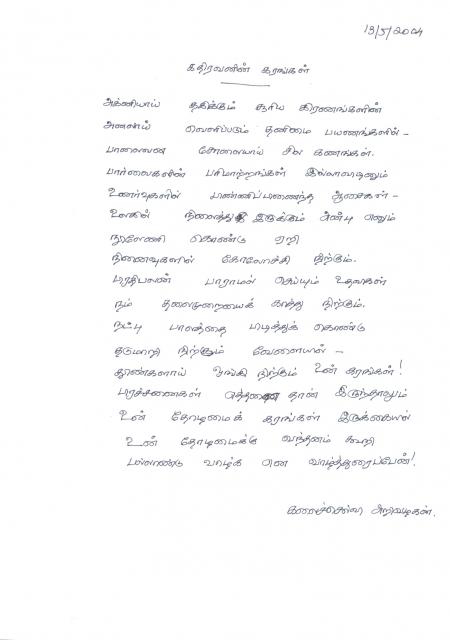 13/5/2004
கதிரவனின் கரங்கள்
அக்னியாய் தகிக்கும் சூரிய கிரணங்களின்
அனலாய் வெளிப்படும் தனிமை பயணங்களின் -
பாலைவன சோலையாய் சில கணங்கள்.
பார்வைகளின் பரிமாற்றங்கள் இல்லாவடினும்
உணர்வுகளில் பின்னிப்பிணைந்த ஆசைகள் -
உலகில் நிலைத்து இருக்கும் அன்பு எனும்
நூலேணி கொண்டு ஏறி
நினைவுகளின் கோலோச்சி நிற்கும்.
பிரதிபலன் பாராமல் செய்யும் உதவிகள்
நம் தலைமுறையைக் காத்து நிற்கும்.
நட்பு பாலத்தை பிடித்துக் கொண்டு
தடுமாறி நிற்கும் வேளையில் -
தூண்களாய் தாங்கி நிற்கும் உன் கரங்கள்!
பிரச்சனைகள் எத்தனை தான் இருந்தாலும்
உன் தோழமைக் கரங்கள் இருக்கையில்
உன் தோழமைக்கு வந்தனம் கூறி
பல்லாண்டு வாழ்க என வாழ்த்துரைப்பேன்!
கலைச்செல்வி அறிவழகன்.